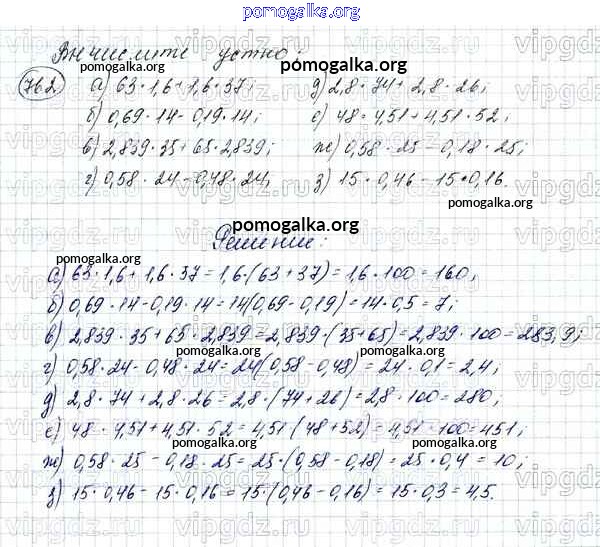 pomogalka.org
Вычислите устно:
762 а) 63·1,6+1,6·37; д) 2,8·74+2,8·26;
pomogalka.org
б) 0,69·14-0,19·14; е) 48·4,51+4,51·52;
в) 2,839·35+65·2,839; ж) 0,58·25-0,18·25;
г) 0,58·24-0,48·24; з) 15·0,46-15·0,16.
pomogalka.org pomogalka.org
pomogalka.org
Решение:
а) 63·1,6+1,6·37=1,6·(63+37)=1,6·100=160;
б) 0,69·14-0,19·14=14(0,69-0,19)=14·0,5=7;
в) 2,839·35+65·2,839=2,839·(35+65)=2,839·100=283,9;
pomogalka.org pomogalka.org
г) 0,58·24-0,48·24=24(0,58-0,48)=24·0,1=2,4;
д) 2,8·74+2,8·26=2,8·(74+26)=2,8·100=280;
е) 48·4,51+4,51·52=4,51(48+52)=4,51·100=451;
pomogalka.org pomogalka.org
ж) 0,58·25-0,18·25=25·(0,58-0,18)=25·0,4=10;
з) 15·0,46-15·0,16=15·(0,46-0,16)=15·0,3=4,5.
pomogalka.org